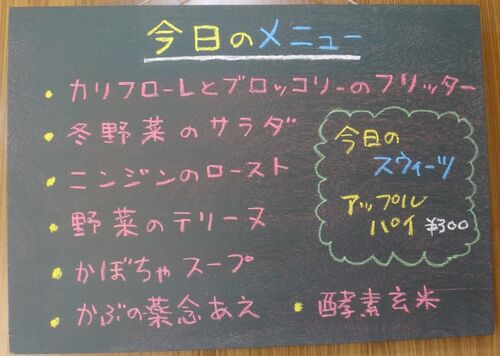 今日のメニュー
・カリフローレとブロッコリーのフリッター
・冬野菜のサラダ
・ニンジンのロースト
・野菜のテリーヌ
・かぼちゃスープ
・かぶの薬念あえ
・酵素玄米
今日の
スウィーツ
アップル
パイ ¥300